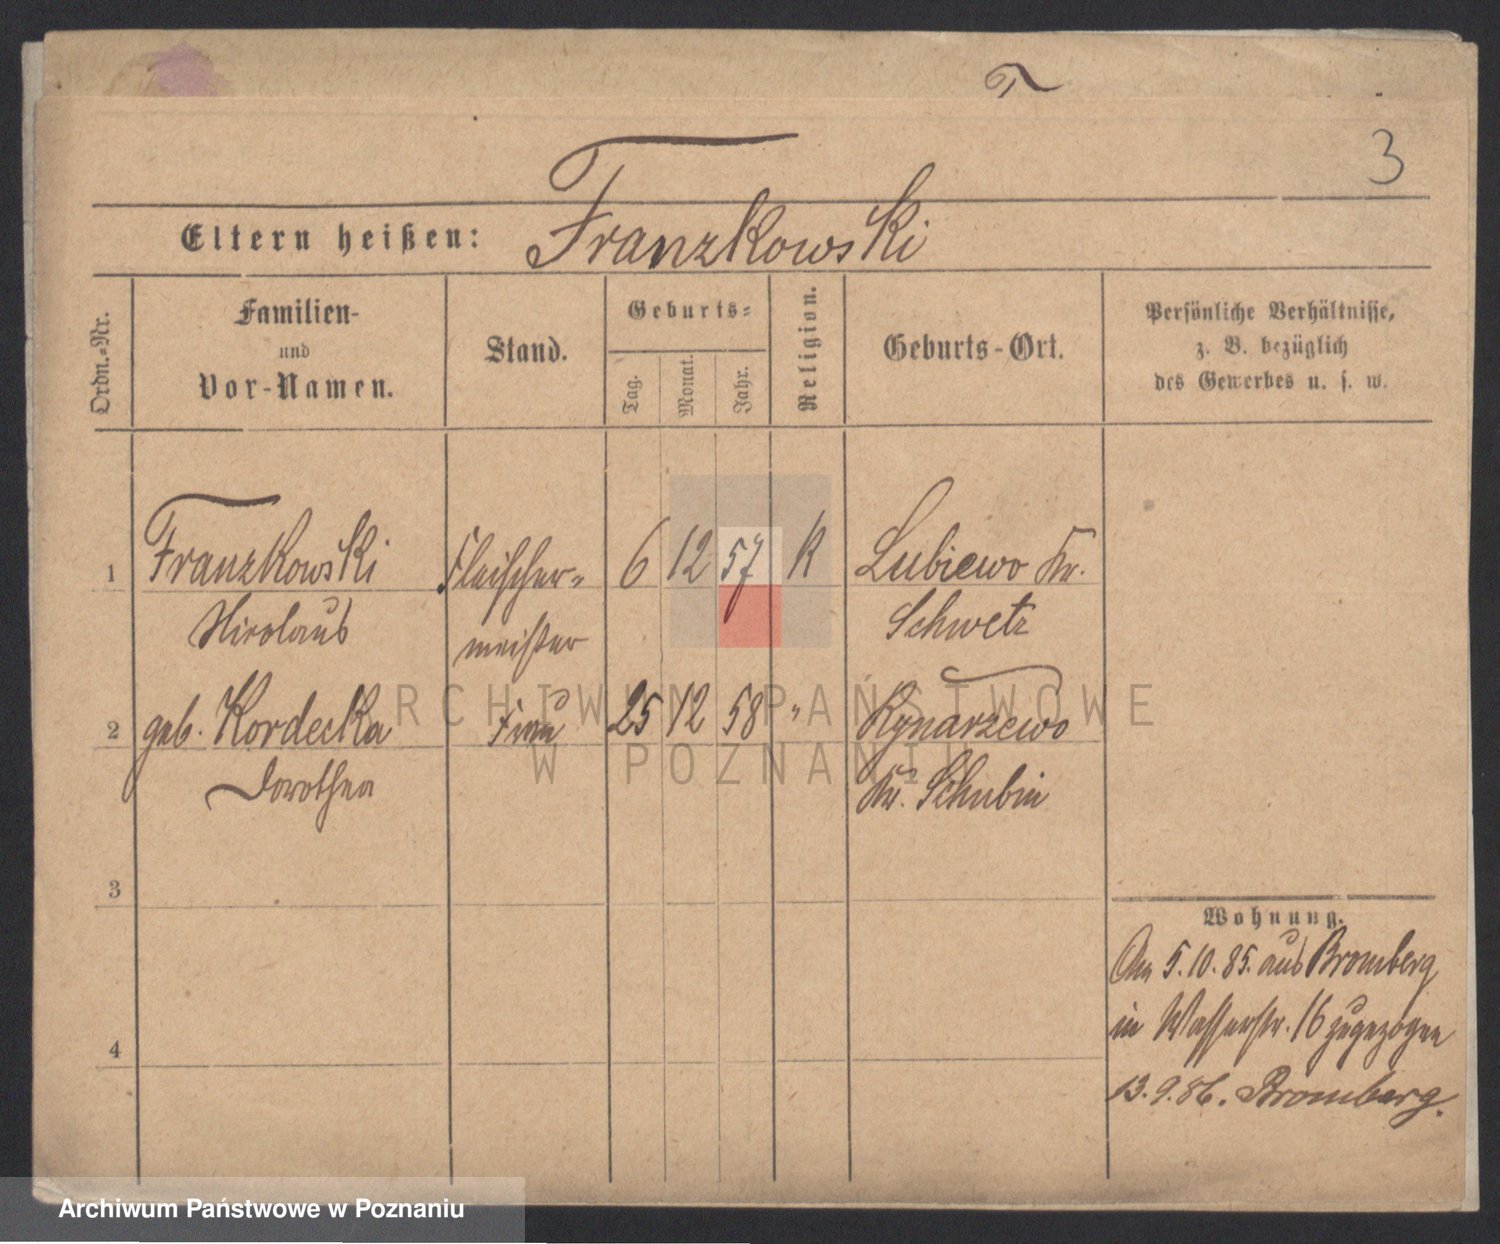 3
Franzkowski
Eltern heißen:
Ordn.-Nr.
Familien-
und
Vor-Namen.
Stand.
Geburts-
Tag.
Monat.
Jahr.
Religion.
Geburts-Ort.
Persönliche Verhältnisse,
z. B. bezüglich
des Gewerbes u. s. w.
1 Franzkowski Fleischer- 6 12 57 K Lubiewo Kr.
Nikolaus meister Schwetz
2 geb. Kordecka Frau 25 12 58 " Rynarzewo
Dorothea Kr. Schubin
3
4
Wohnung.
Am 5.10.85. aus Bromberg
in Wasserstr. 16 zugezogen
13.9.86. Bromberg.
ARCHIWUM PAŃSTWOWE
W POZNANIU
Archiwum Państwowe w Poznaniu